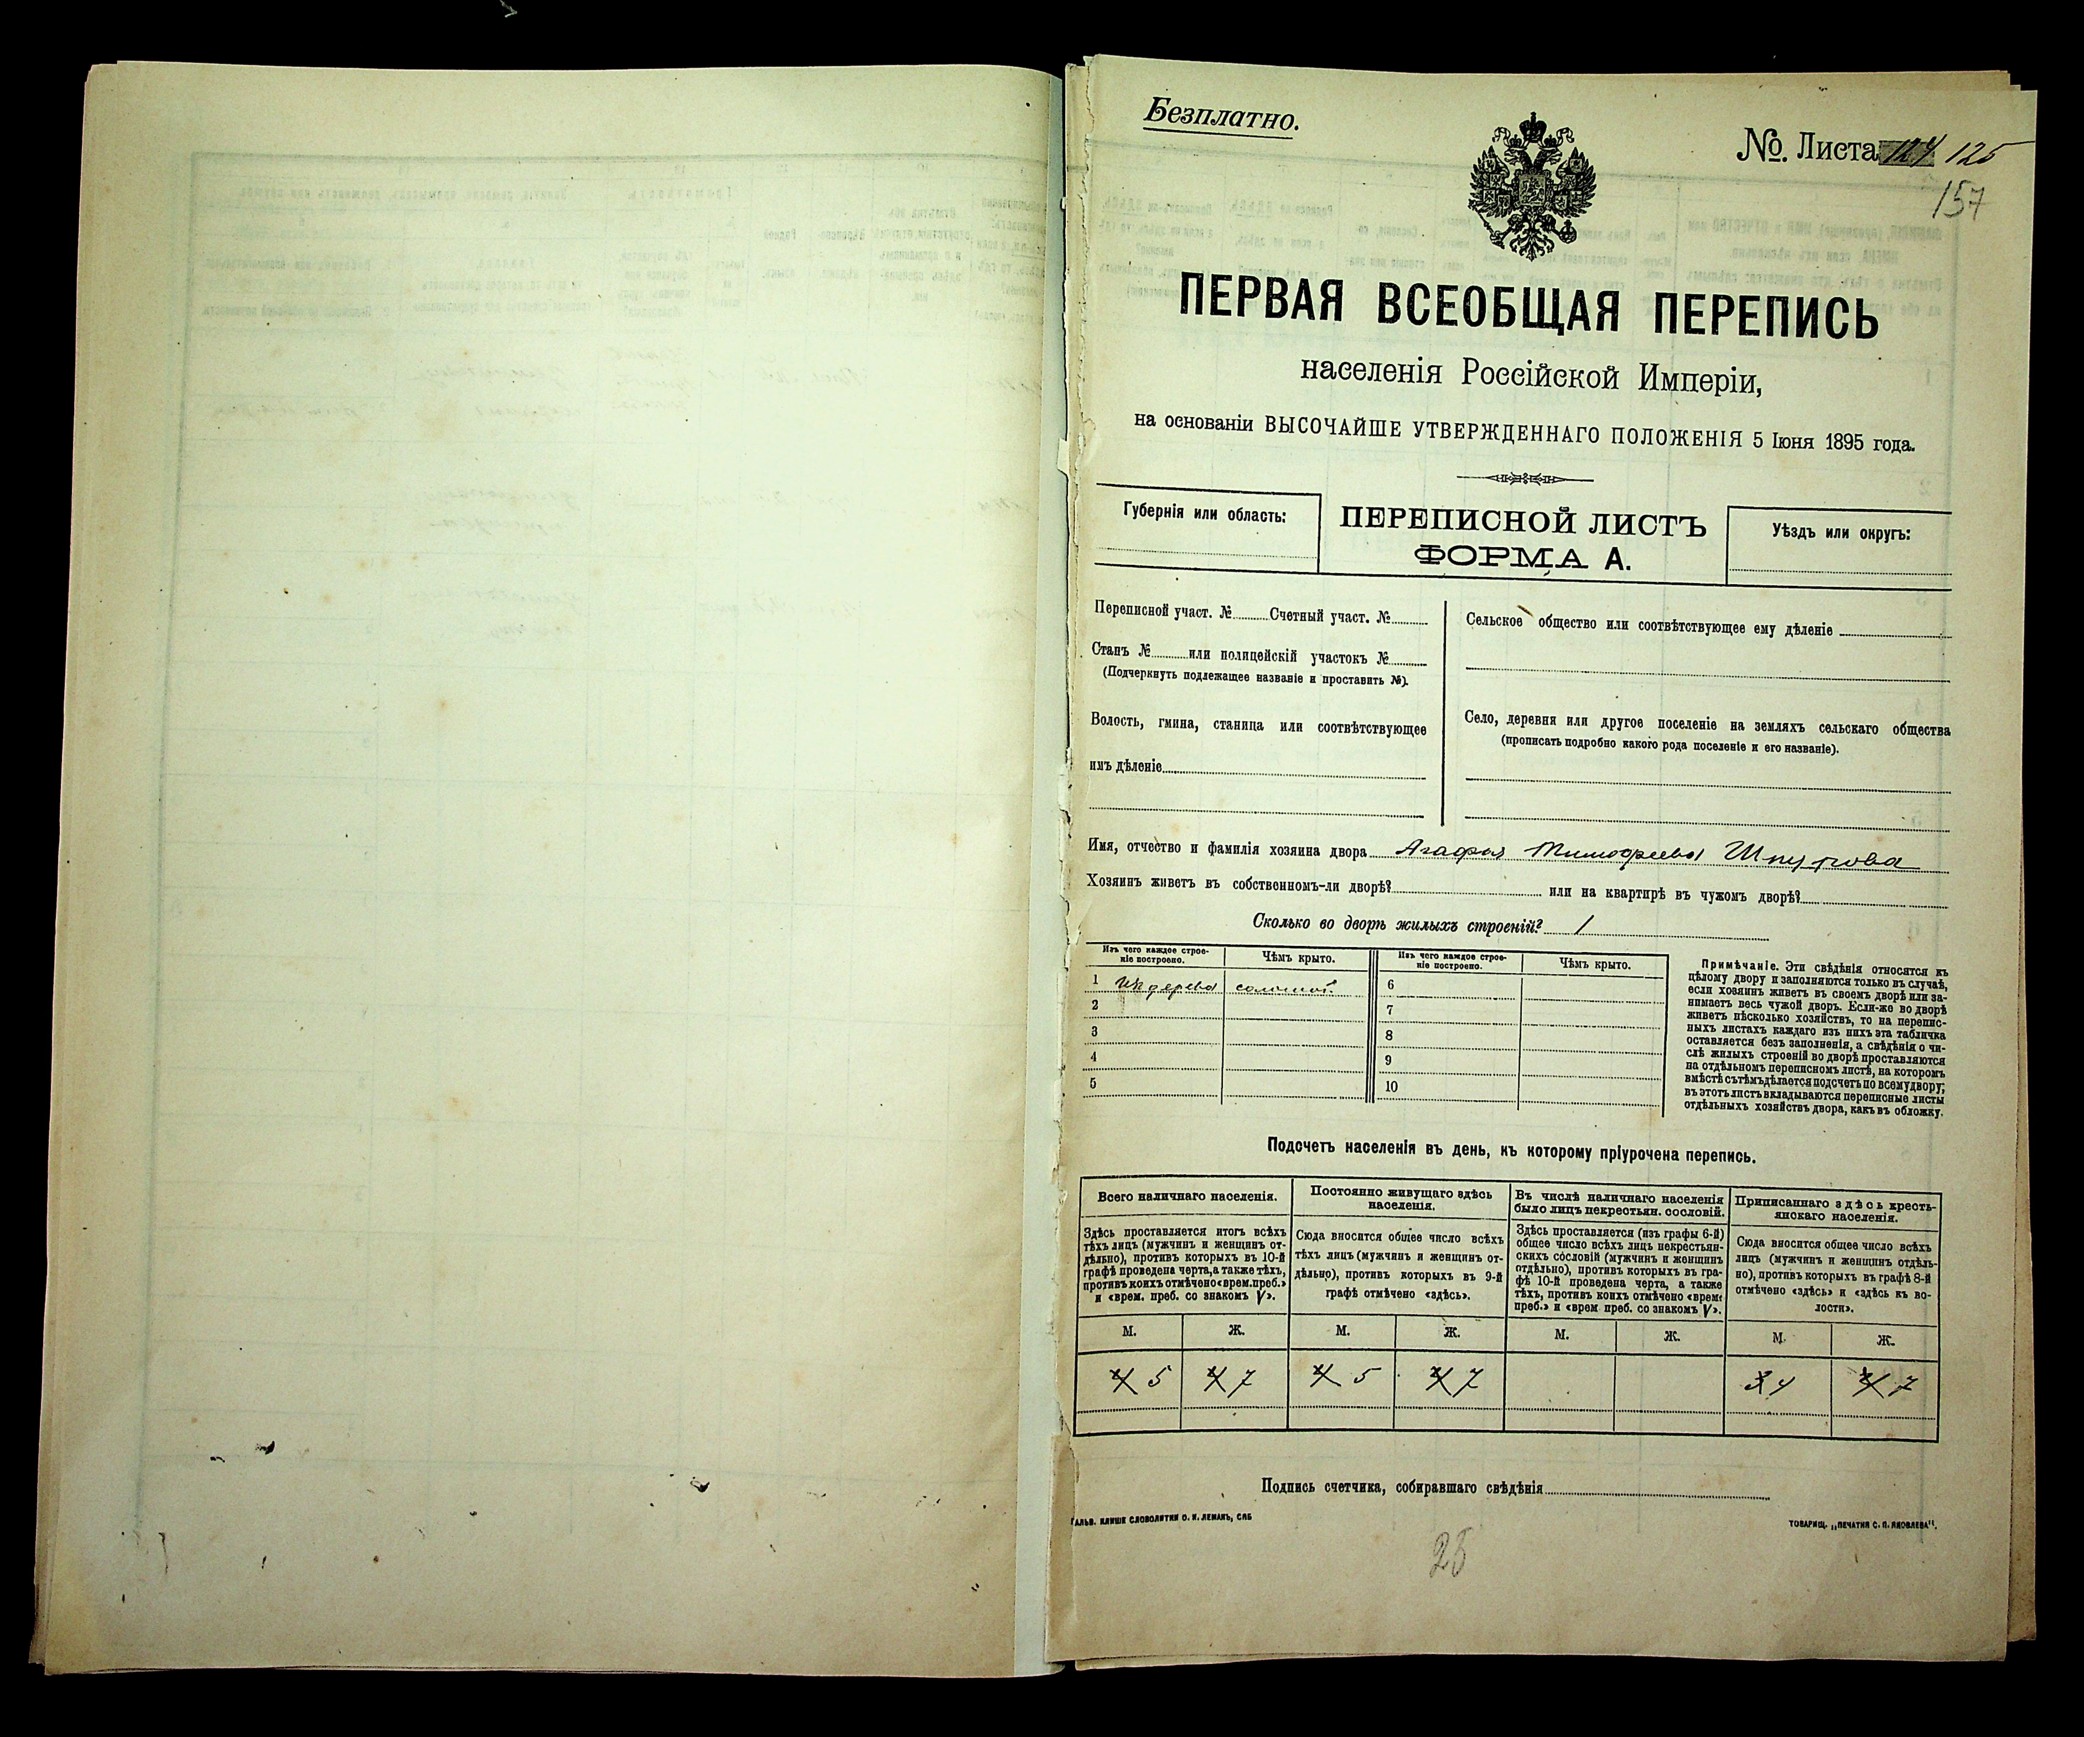 Безплатно.
№. Листа 124 125
157
ПЕРВАЯ ВСЕОБЩАЯ ПЕРЕПИСЬ
населенія Россійской Имперіи,
на основаніи ВЫСОЧАЙШЕ УТВЕРЖДЕННАГО ПОЛОЖЕНІЯ 5 Іюня 1895 года.
Губернія или область:
ПЕРЕПИСНОЙ ЛИСТЪ
ФОРМА А.
Уѣздъ или округъ:
Переписной участ. № Счетный участ. №
Станъ № или полицейскій участокъ №
(Подчеркнуть подлежащее названіе и проставить №).
Волость, гмина, станица или соотвѣтствующее
имъ дѣленіе
Сельское общество или соотвѣтствующее ему дѣленіе
Село, деревня или другое поселеніе на земляхъ сельскаго общества
(прописать подробно какого рода поселеніе и его названіе).
Имя, отчество и фамилія хозяина двора Агафья Тимофеева Шпурова
Хозяинъ живетъ въ собственномъ-ли дворѣ? или на квартирѣ въ чужомъ дворѣ?
Сколько во дворѣ жилыхъ строеній? 1
Изъ чего каждое строе-
ніе построено.
Чѣмъ крыто.
Изъ чего каждое строе-
ніе построено.
Чѣмъ крыто.
1 Изъ дерева соломой
2
3
4
5
6
7
8
9
10
Примѣчаніе. Эти свѣдѣнія относятся къ
цѣлому двору и заполняются только въ случаѣ,
если хозяинъ живетъ въ своемъ дворѣ или за-
нимаетъ весь чужой дворъ. Если-же во дворѣ
живетъ нѣсколько хозяйствъ, то на перепис-
ныхъ листахъ каждаго изъ нихъ эта табличка
оставляется безъ заполненія, а свѣдѣнія о чи-
слѣ жилыхъ строеній во дворѣ проставляются
на отдѣльномъ переписномъ листѣ, на которомъ
вмѣстѣ съ тѣмъ дѣлается подсчетъ по всему двору;
въ этотъ листъ вкладываются переписные листы
отдѣльныхъ хозяйствъ двора, какъ въ обложку.
Подсчетъ населенія въ день, къ которому пріурочена перепись.
Всего наличнаго населенія.
Здѣсь проставляется итогъ всѣхъ
тѣхъ лицъ (мужчинъ и женщинъ от-
дѣльно), противъ которыхъ въ 10-й
графѣ проведена черта, а также тѣхъ,
противъ коихъ отмѣчено «врем. преб.»
и «врем. преб. со знакомъ V».
Постоянно живущаго здѣсь
населенія.
Сюда вносится общее число всѣхъ
тѣхъ лицъ (мужчинъ и женщинъ от-
дѣльно), противъ которыхъ въ 9-й
графѣ отмѣчено «здѣсь».
Въ числѣ наличнаго населенія
было лицъ некрестьян. сословій.
Здѣсь проставляется (изъ графы 6-й)
общее число всѣхъ лицъ некрестьян-
скихъ сословій (мужчинъ и женщинъ
отдѣльно), противъ которыхъ въ гра-
фѣ 10-й проведена черта, а также
тѣхъ, противъ коихъ отмѣчено «врем.
преб.» и «врем преб. со знакомъ V».
Приписаннаго здѣсь кресть-
янскаго населенія.
Сюда вносится общее число всѣхъ
лицъ (мужчинъ и женщинъ отдѣль-
но), противъ которыхъ въ графѣ 8-й
отмѣчено «здѣсь» и «здѣсь къ во-
лости».
М. Ж. М. Ж. М. Ж. М. Ж.
5 7 5 7 4 7
Подпись счетчика, собиравшаго свѣдѣнія
ГАЛЬВ. КЛИШЕ СЛОВОЛИТНИ О. И. ЛЕМАНЪ, СПБ
ТОВАРИЩ. „ПЕЧАТНЯ С. П. ЯКОВЛЕВА“.
25